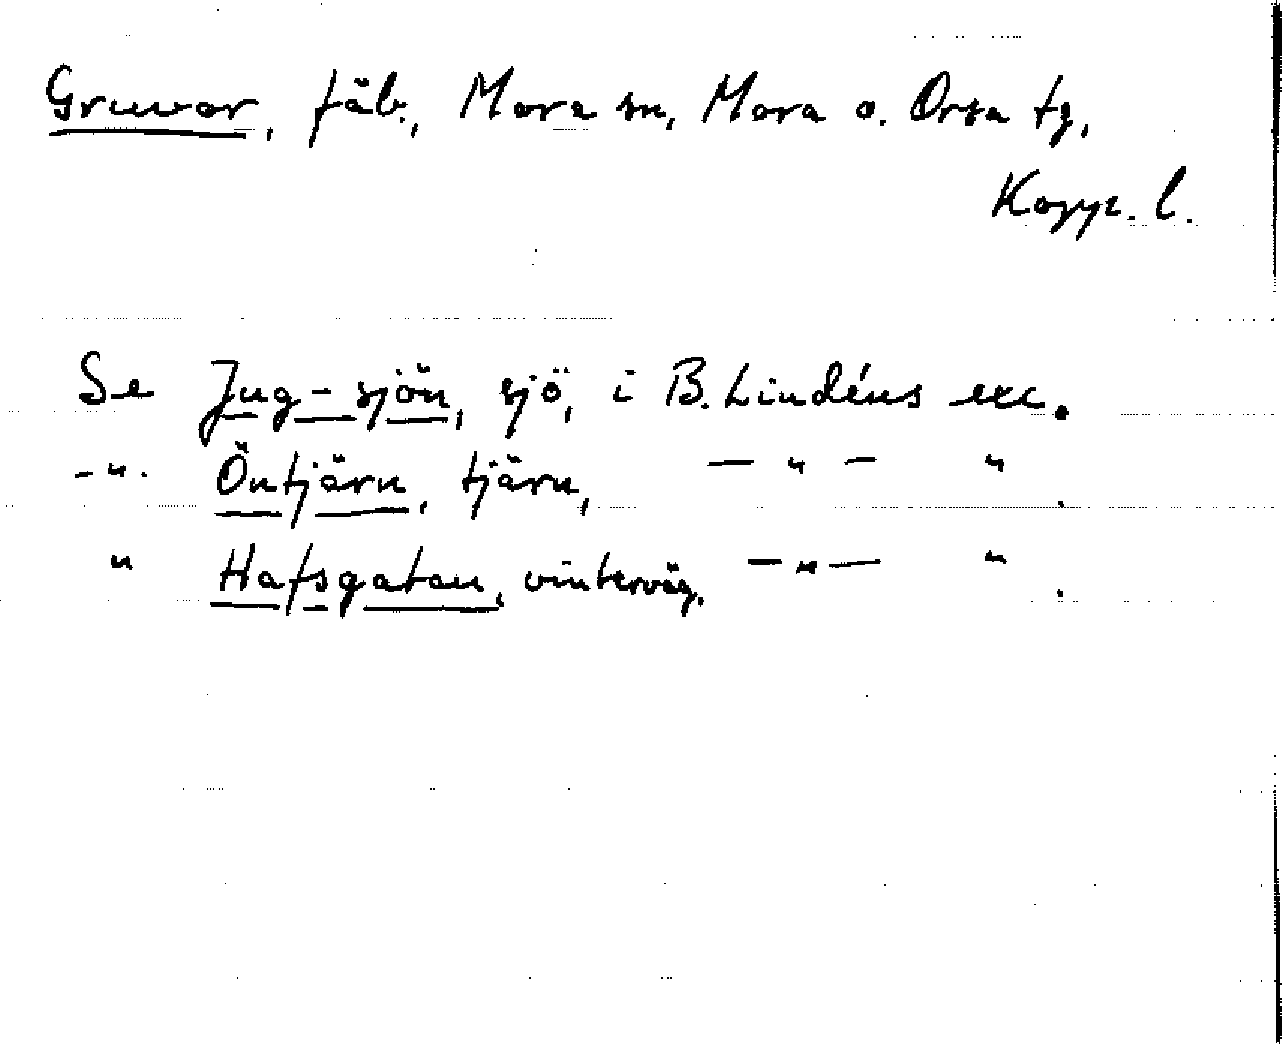 Gruvor, fäb., Mora sn, Mora o. Orsa tg,
Kopp. l.
Se Jug-sjön, sjö, i B. Lindéns exc.
-"- Öntjärn, tjärn, — " — " .
" Hafsgatan, vinterväg, — " — " .